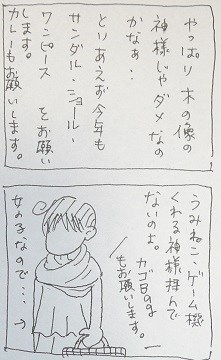 やっぱり木の像の
神様じゃダメなの
かなぁ…
とりあえず今年も
サンダル・ショール・
ワンピース をお願い
します。
カレーもお願いします。
うみねこ、ゲーム機
くれる神様拝んで
ないのよ。
カゴ日のよ
もお願いします。
女の子なので…→